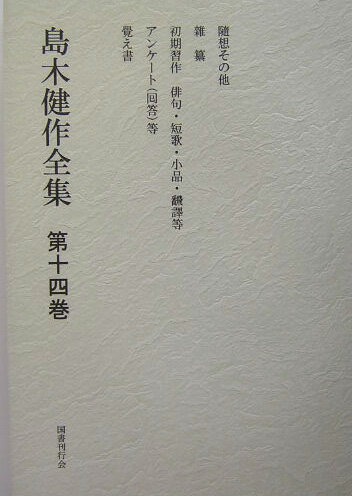 隨想その他
雜纂
初期習作 俳句・短歌・小品・飜譯等
アンケート(回答)等
覺え書
島木健作全集 第十四巻
国書刊行会